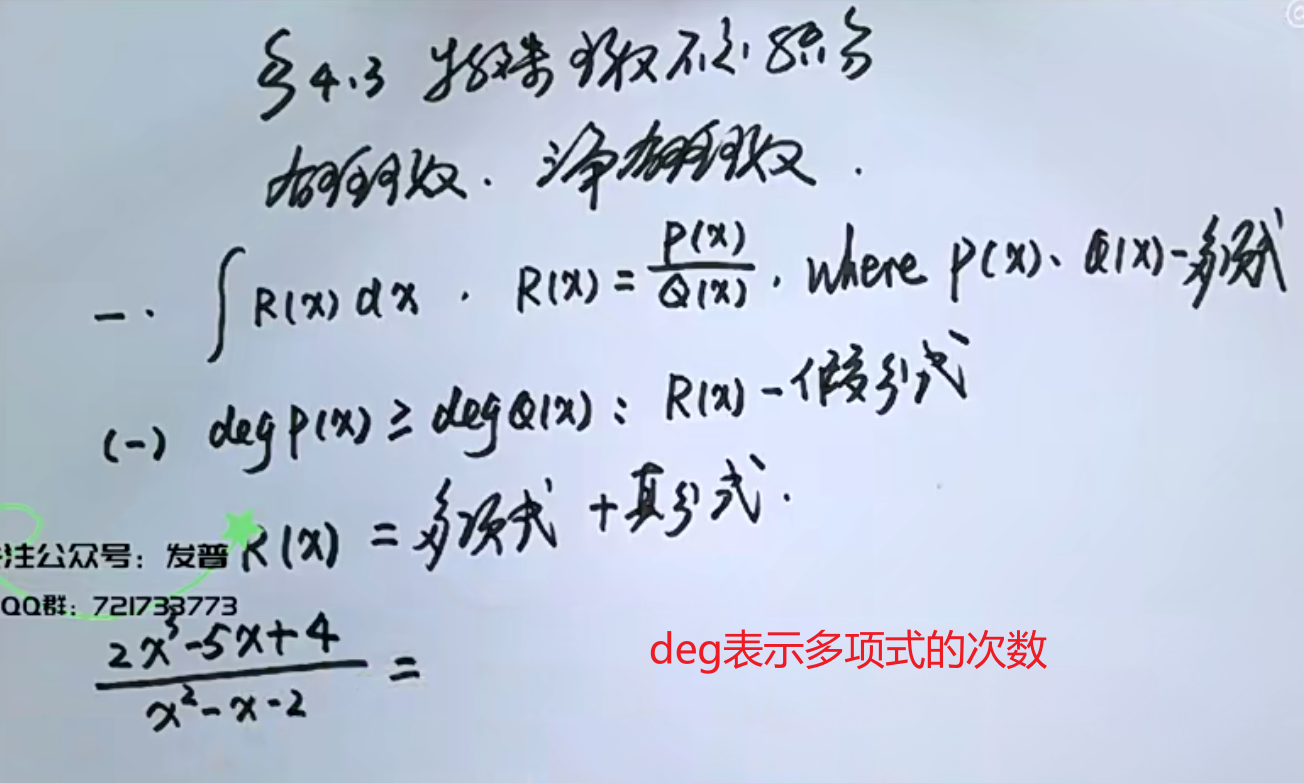 §4.3 特殊函数不定积分
有理函数. 三角有理函数.
一. ∫R(x)dx. R(x) = P(x)/Q(x), where P(x)、Q(x)-多项式
(一) deg P(x) ≥ deg Q(x): R(x)-假分式
R(x) = 多项式 + 真分式.
注公众号：发普
QQ群：721733773
(2x³-5x+4)/(x²-x-2) =
deg表示多项式的次数